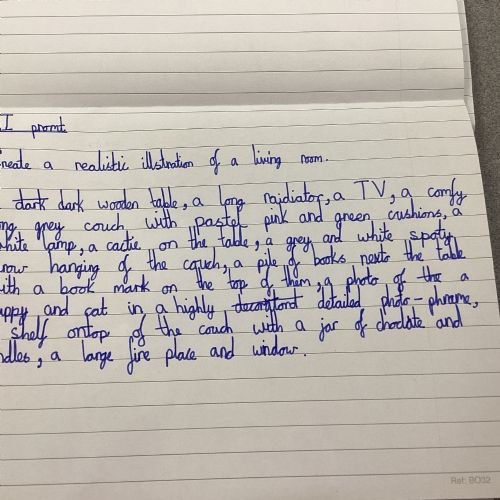 I promt
reate a realistic illstration of a living room.
dark dark wooden table, a long raidiator, a TV, a comfy
ong grey couch with pastel pink and green cushions, a
hite lamp, a cactie on the table, a grey and white spoty
hrow hanging of the couch, a pile of books nexto the table
ith a book mark on the top of them, a photo of the a
uppy and cat in a highly detailed photo-phrame,
shelf ontop of the couch with a jar of choclate and
ndles, a large fire place and window.
Ref: BO32